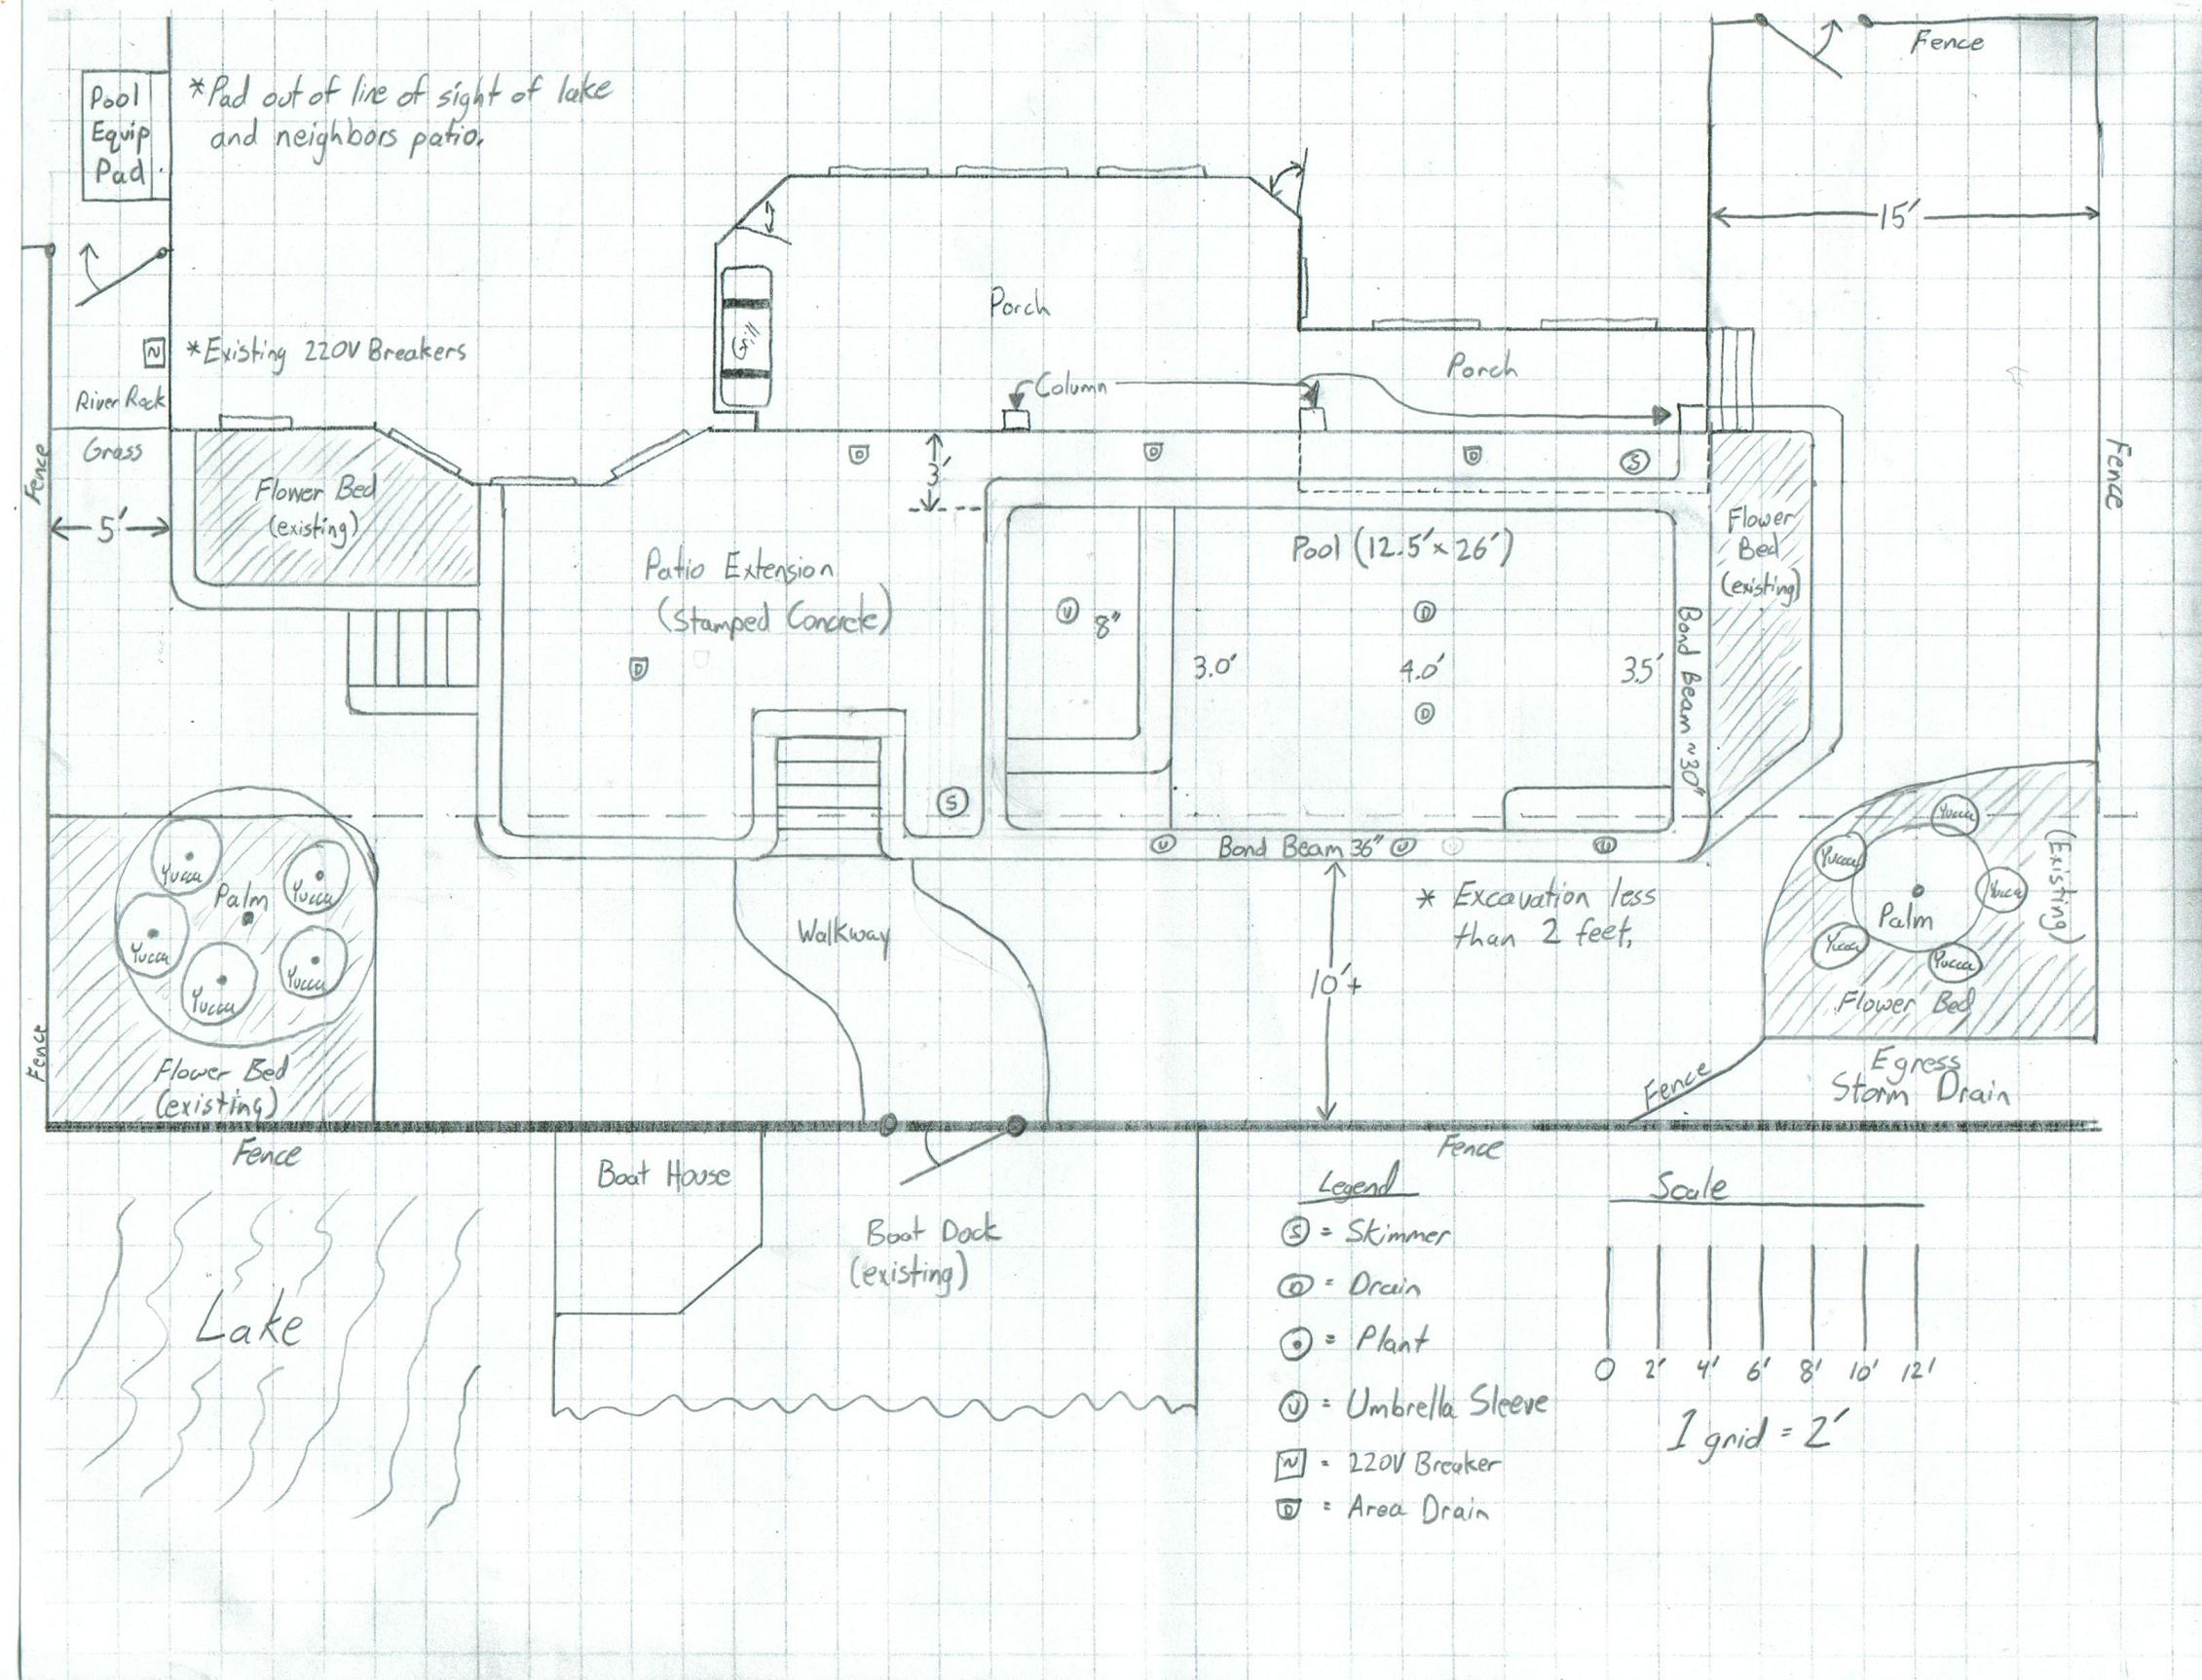 Fence
Pool
Equip
Pad
*Pad out of line of sight of lake
and neighbors patio.
15'
Porch
Grill
N
*Existing 220V Breakers
River Rock
Grass
Column
Porch
Fence
Fence
D
3'
D
D
S
Flower Bed
(existing)
5'
Patio Extension
(Stamped Concrete)
Pool (12.5' x 26')
Flower
Bed
(existing)
U
8"
D
3.0'
4.0'
3.5'
D
D
Bond Beam ~30"
S
U
Bond Beam 36"
U
U
U
Yucca
Yucca
Palm
Yucca
Yucca
Yucca
Flower Bed
(existing)
Fence
Walkway
* Excavation less
than 2 feet.
10'+
Yucca
Yucca
Yucca
Palm
Yucca
Yucca
(Existing)
Flower Bed
Fence
Egress
Storm Drain
Fence
Fence
Boat House
Boat Dock
(existing)
Lake
Legend
S = Skimmer
D = Drain
= Plant
U = Umbrella Sleeve
N = 220V Breaker
D = Area Drain
Scale
0 2' 4' 6' 8' 10' 12'
1 grid = 2'